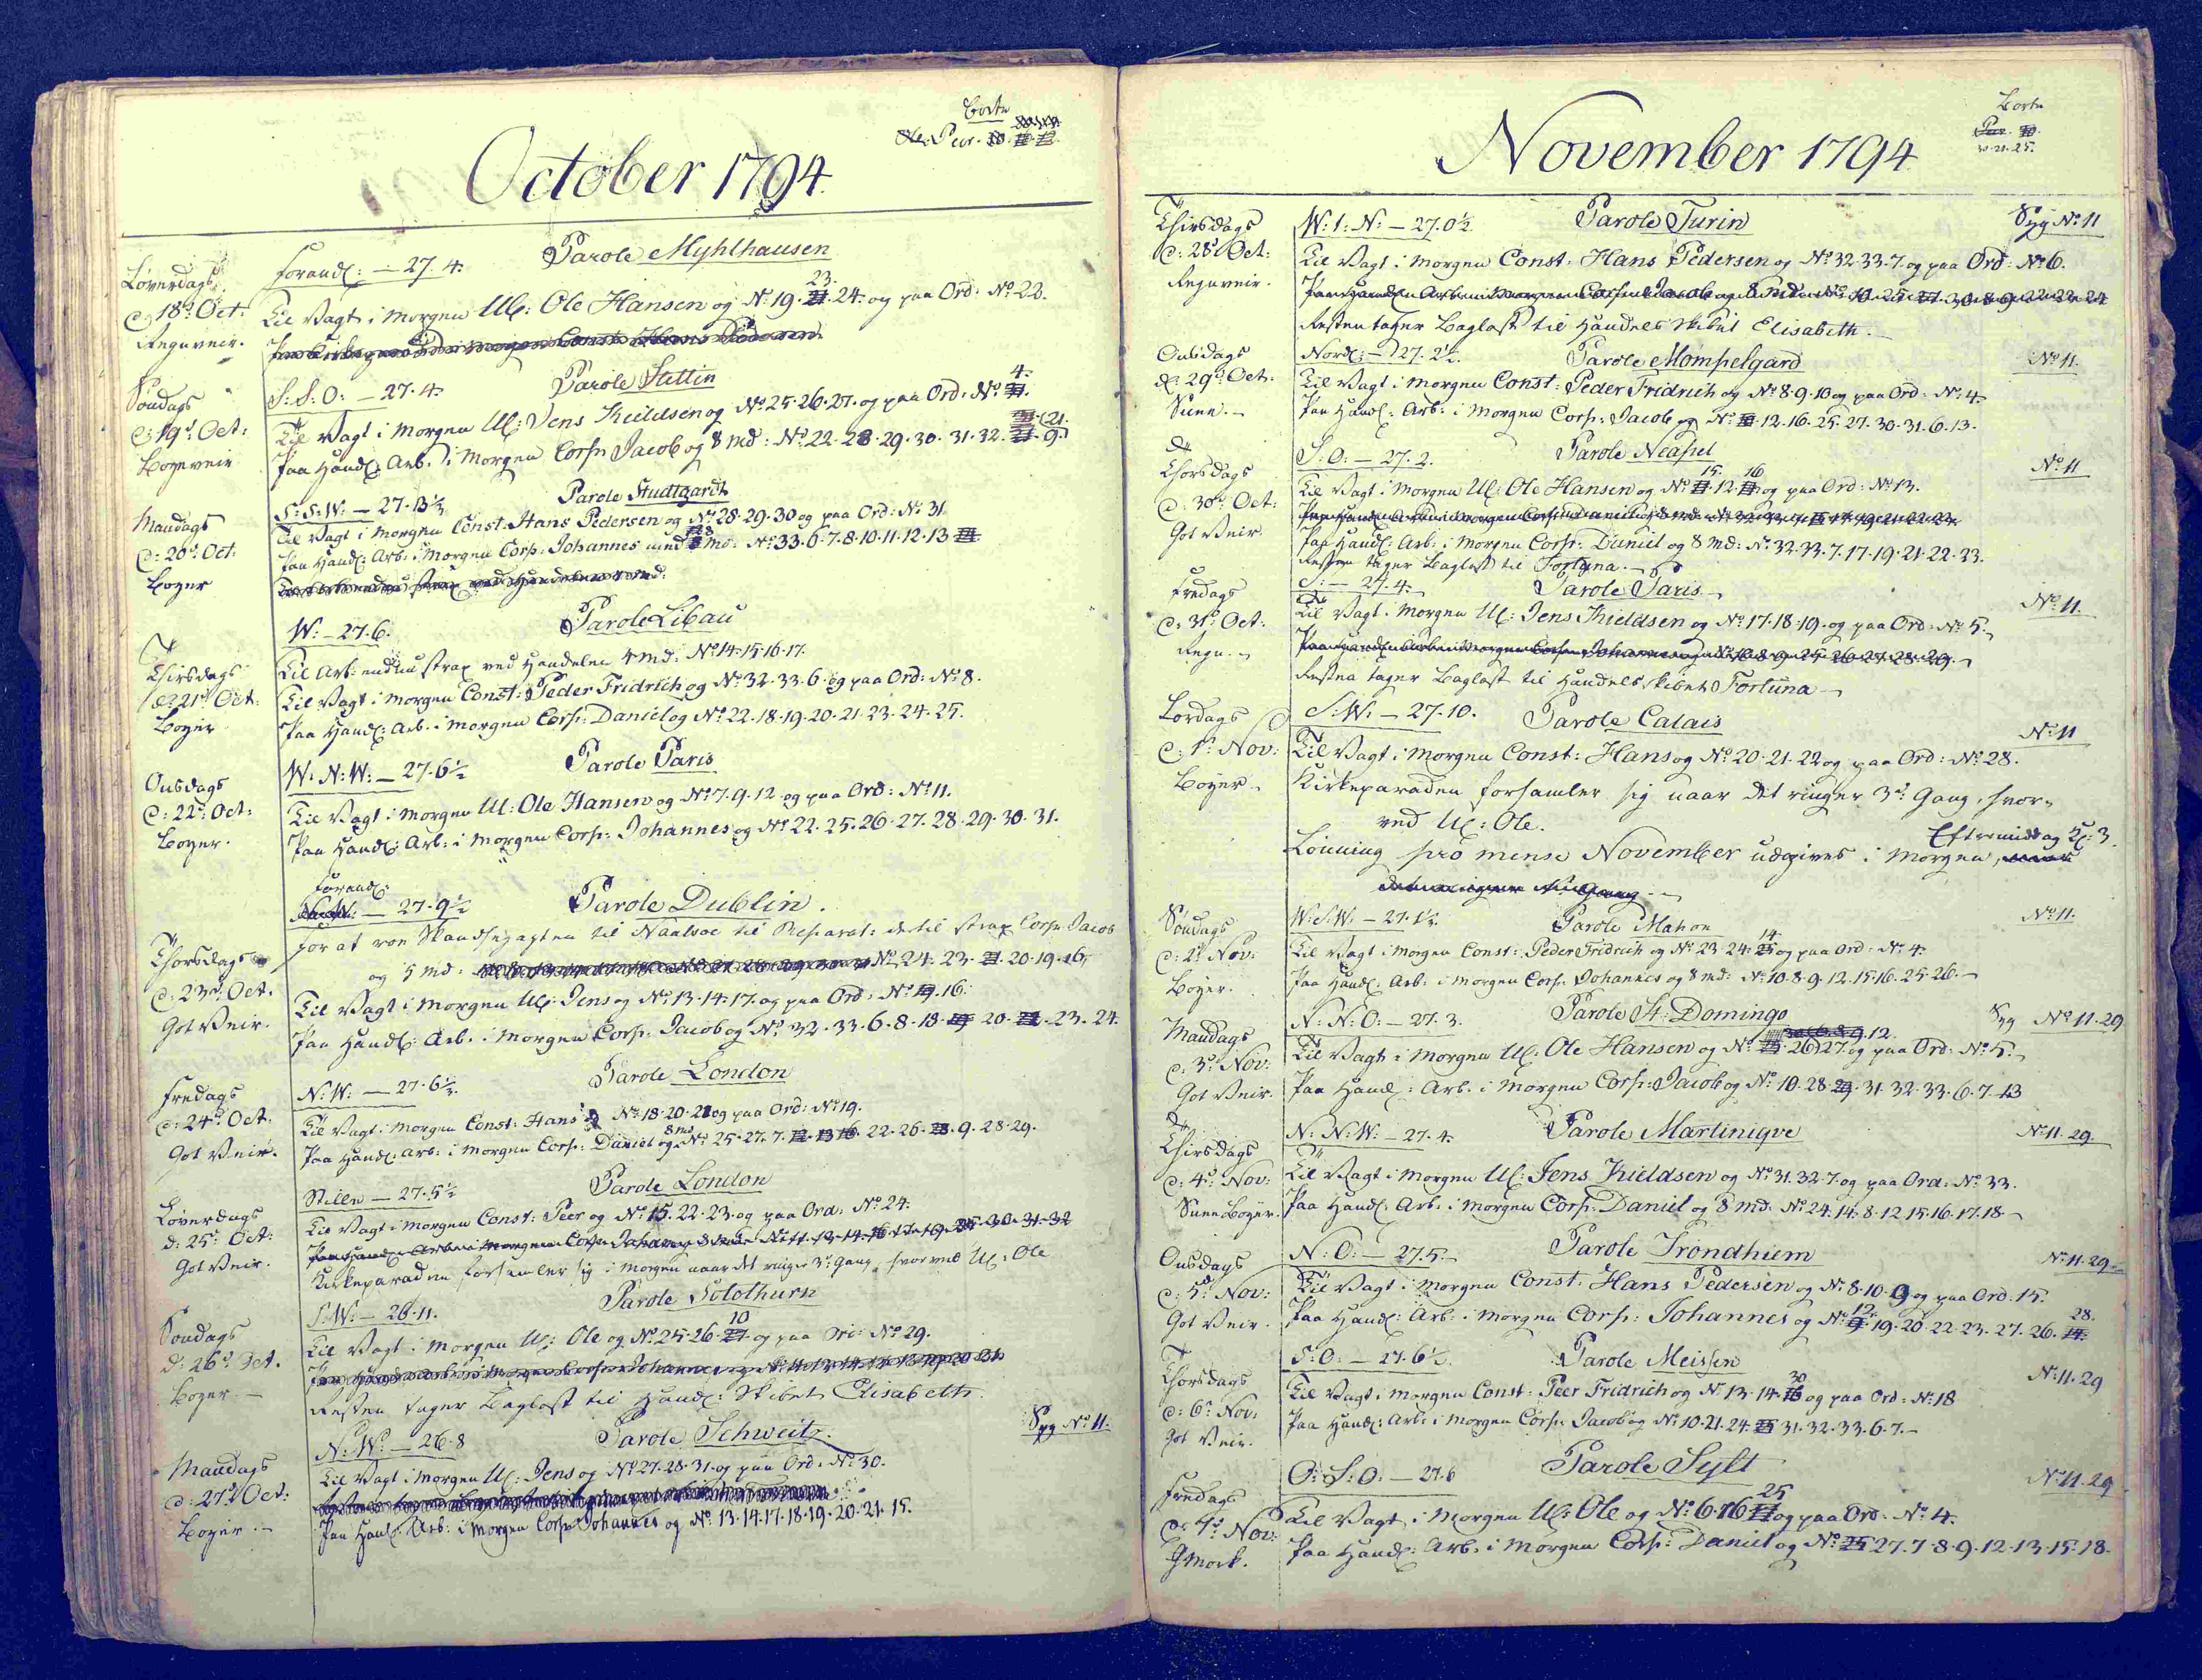 October 1794.
Borte
Løverdags
d: 18de Oct:
Regnveir.
forandl: — 27. 4.
Parole Myhlhausen
Til Vagt i Morgen UC: Ole Hansen og No 19. 23. 24. og paa Ord: No 22.
Søndags
d: 19de Oct:
Bøyeveir
S: S: O: — 27. 4.
Parole Stettin
Til Vagt i Morgen UC: Jens Kieldsen og No 25. 26. 27. og paa Ord: No 4.
Paa Handl: Arb. i Morgen Corp: Jacob og 8 Md: No 22. 28. 29. 30. 31. 32. 21. 9.
Mandags
d: 20de Oct:
Bøyer
S: S: W: — 27. 3½
Parole Studtgardt
Til Vagt i Morgen Const: Hans Pedersen og No 28. 29. 30 og paa Ord: No 31
Paa Handl: Arb: i Morgen Corp: Johannes med 8 Md: No 33. 6. 7. 8. 10. 11. 12. 13
Thirsdags
d: 21de Oct:
Bøyer
W: — 27. 6.
Parole Libau
Til Arb: endnu strax ved Handelen 4 Md: No 14. 15. 16. 17.
Til Vagt i Morgen Const: Peder Fridrich og No 32. 33. 6. og paa Ord: No 8.
Paa Handl: Arb. i Morgen Corp: Daniel og No 22. 18. 19. 20. 21. 23. 24. 25.
Onsdags
d: 22de Oct:
Bøyer.
W: N: W: — 27. 6½
Parole Paris
Til Vagt i Morgen UC: Ole Hansen og No 7. 9. 12 og paa Ord: No 11.
Paa Handl: Arb: i Morgen Corp: Johannes og No 22. 25. 26. 27. 28. 29. 30. 31.
Thorsdags
d: 23de Oct.
Got Veir.
forandl:
— 27. 9½
Parole Dublin.
for at roe til Reparat: dertil strax Corp: Jacob
og 5 Md: No 24. 23. 21. 20. 19. 16.
Til Vagt i Morgen UC: Jens og No 13. 14. 17. og paa Ord: No 16.
Paa Handl: Arb. i Morgen Corp: Jacob og No 32. 33. 6. 8. 18. 20. 23. 24.
Fredags
d: 24de Oct.
Got Veir.
N: W: — 27. 6½
Parole London
Til Vagt i Morgen Const: Hans og No 18. 20. 21 og paa Ord: No 19.
Paa Handl: Arb: i Morgen Corp: Daniel og 8 Md No 25. 27. 7. 22. 26. 9. 28. 29.
Løverdags
d: 25de Oct:
Got Veir.
Stille — 27. 5½
Parole London
Til Vagt i Morgen Const: Peer og No 15. 22. 23. og paa Ord: No 24.
Kirkeparaden forsamler sig i Morgen naar det ringer 3de Gang, hvorved UC: Ole
Søndags
d: 26de Oct.
Bøyer —
S: W: — 26. 11.
Parole Solothurn
Til Vagt i Morgen UC: Ole og No 25. 26. 10 og paa Ord: No 29.
Resten tager Baglast til Handl: Skibet Elisabeth.
Mandags
d: 27de Oct:
Bøyer —
N: W: — 26. 8
Parole Schweitz.
Syg No 11.
Til Vagt i Morgen UC: Jens og No 27. 28. 31. og paa Ord: No 30.
Paa Handl: Arb: i Morgen Corp: Johannes og No 13. 14. 17. 18. 19. 20. 21. 15.
November 1794
Borte
Thirsdags
d: 28de Oct:
Regnveir.
W: t: N: — 27. 0½
Parole Turin
Syg No 11
Til Vagt i Morgen Const: Hans Pedersen og No 32. 33. 7. og paa Ord: No 6.
Resten tager Baglast til Handels Skibet Elisabeth.
Onsdags
d: 29de Oct:
Sunn. —
Nordl: — 27. 2½.
Parole Mompelgard
No 11.
Til Vagt i Morgen Const: Peder Fridrich og No 8. 9. 10 og paa Ord: No 4.
Paa Handl: Arb: i Morgen Corp: Jacob og No 12. 16. 25. 27. 30. 31. 6. 13.
Thorsdags
d: 30de Oct:
Got Veir.
S: O: — 27. 2.
Parole Neapel
No 11
Til Vagt i Morgen UC: Ole Hansen og No 15. 12. 16 og paa Ord: No 13.
Paa Handl: Arb: i Morgen Corp: Daniel og 8 Md: No 32. 33. 7. 17. 19. 21. 22. 23.
Resten tager Baglast til Fortuna. —
Fredags
d: 31de Oct:
Regn. —
S: — 27. 4.
Parole Paris —
No 11.
Til Vagt i Morgen UC: Jens Kieldsen og No 17. 18. 19. og paa Ord: No 5.
Resten tager Baglast til Handels Skibet Fortuna —
Lørdags
d: 1de Nov:
Bøyer —
S: W: — 27. 10.
Parole Calais
No 11
Til Vagt i Morgen Const: Hans og No 20. 21. 22 og paa Ord: No 28.
Kirkeparaden forsamler sig naar det ringer 3de Gang, hvor-
ved UC: Ole.
Eftermiddag Kl: 3.
Lønning pro mense November udgives i Morgen,
Søndags
d: 2de Nov:
Bøyer.
W: S: W: — 27. 1½
Parole Mahon
No 11.
Til Vagt i Morgen Const: Peder Fridrich og No 23. 24. 14 og paa Ord: No 4.
Paa Handl: Arb: i Morgen Corp: Johannes og 8 Md: No 10. 8. 9. 12. 15. 16. 25. 26. —
Mandags
d: 3de Nov:
Got Veir.
N: N: O: — 27. 3.
Parole St: Domingo
Syg No 11. 29
Til Vagt i Morgen UC: Ole Hansen og No 26. 27. og paa Ord: No 5.
Paa Handl: Arb. i Morgen Corp: Jacob og No 10. 28. 31. 32. 33. 6. 7. 13
Thirsdags
d: 4de Nov:
Sunn Bøyer.
N: N: W: — 27. 4.
Parole Martiniqve
No 11. 29.
Til Vagt i Morgen UC: Jens Kieldsen og No 31. 32. 7. og paa Ord: No 33.
Paa Handl: Arb. i Morgen Corp: Daniel og 8 Md: No 24. 14. 8. 12. 15. 16. 17. 18 —
Onsdags
d: 5de Nov:
Got Veir.
N: O: — 27. 5. —
Parole Trondhiem
No 11. 29. —
Til Vagt i Morgen Const: Hans Pedersen og No 8. 10. 9 og paa Ord: 15.
Paa Handl: Arb: i Morgen Corp: Johannes og No 12. 19. 20. 22. 23. 27. 26. 28.
Thorsdags
d: 6de Nov:
Got Veir.
S: O: — 27. 6½.
Parole Meissen
No 11. 29
Til Vagt i Morgen Const: Peer Fridrich og No 13. 14. 30 og paa Ord: No 18
Paa Handl: Arb: i Morgen Corp: Jacob og No 10. 21. 24. 31. 32. 33. 6. 7. —
Fredags
d: 7de Nov:
O: S: O: — 27. 6
Parole Sylt
No 11. 29
Til Vagt i Morgen UC: Ole og No 6. 16. 25 og paa Ord: No 4.
Paa Handl: Arb. i Morgen Corp: Daniel og No 27. 7. 8. 9. 12. 13. 15. 18.